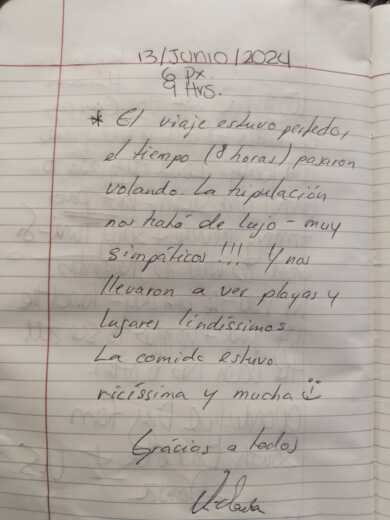 13/JUNIO/2024
6 Px.
9 Hrs.
* El viaje estuvo perfecto,
el tiempo (8 horas) pasaron
volando. La tripulación
nos trató de lujo - muy
simpáticos!!! Y nos
llevaron a ver playas y
lugares lindíssimos.
La comida estuvo
ricíssima y mucha
Grácias a todos